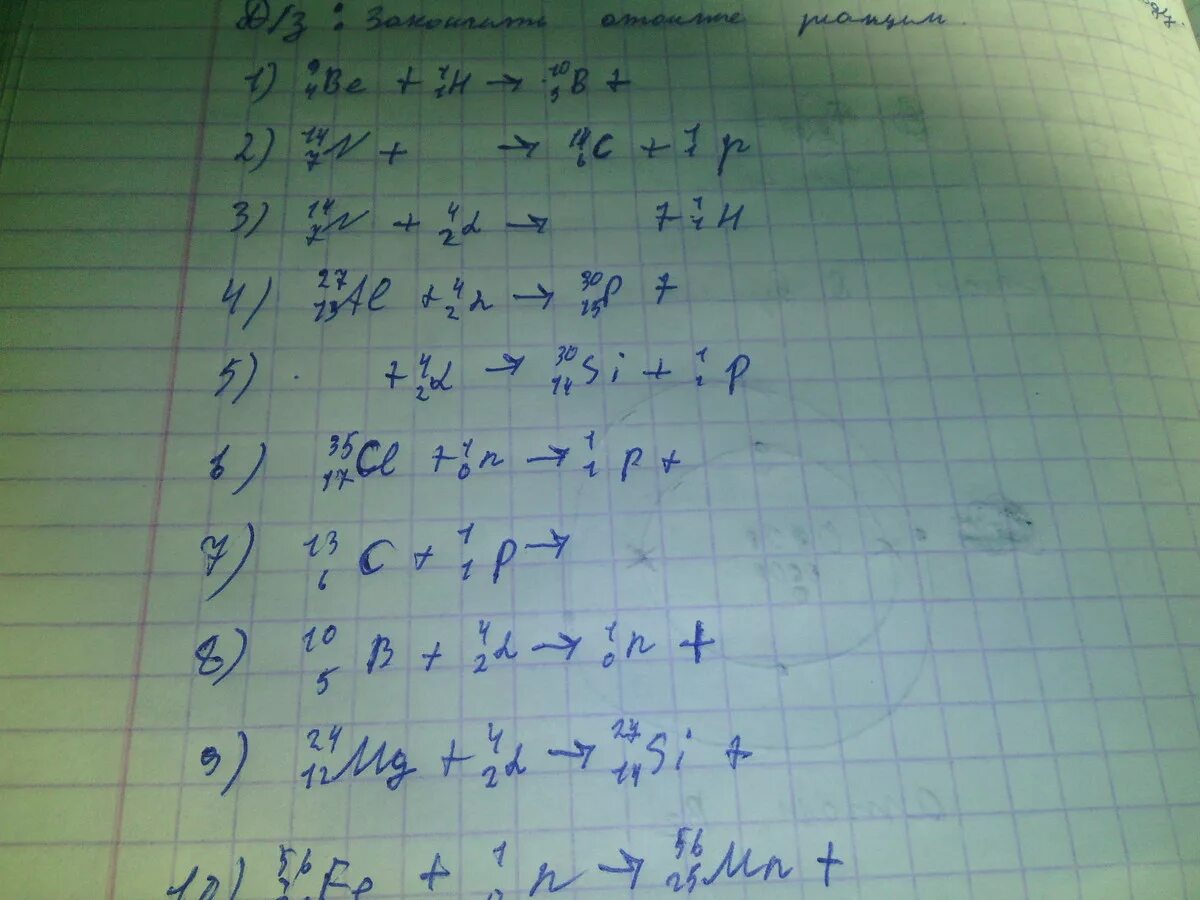 Д/З: Закончить реакции.
1) ⁹₄Be + ¹₁H → ¹⁰₅B +
2) ¹⁴₇N + → ¹⁴₆C + ¹₁p
3) ¹⁴₇N + ⁴₂α → + ¹₁H
4) ²⁷₁₃Al + ⁴₂α → ³⁰₁₅P +
5) + ⁴₂α → ³⁰₁₄Si + ¹₁p
6) ³⁵₁₇Cl + ¹₀n → ¹₁p +
7) ¹³₆C + ¹₁p →
8) ¹⁰₅B + ⁴₂α → ¹₀n +
9) ²⁴₁₂Mg + ⁴₂α → ²⁷₁₄Si +
10) ⁵⁶Fe + ¹₀n → ⁵⁶₂₅Mn +